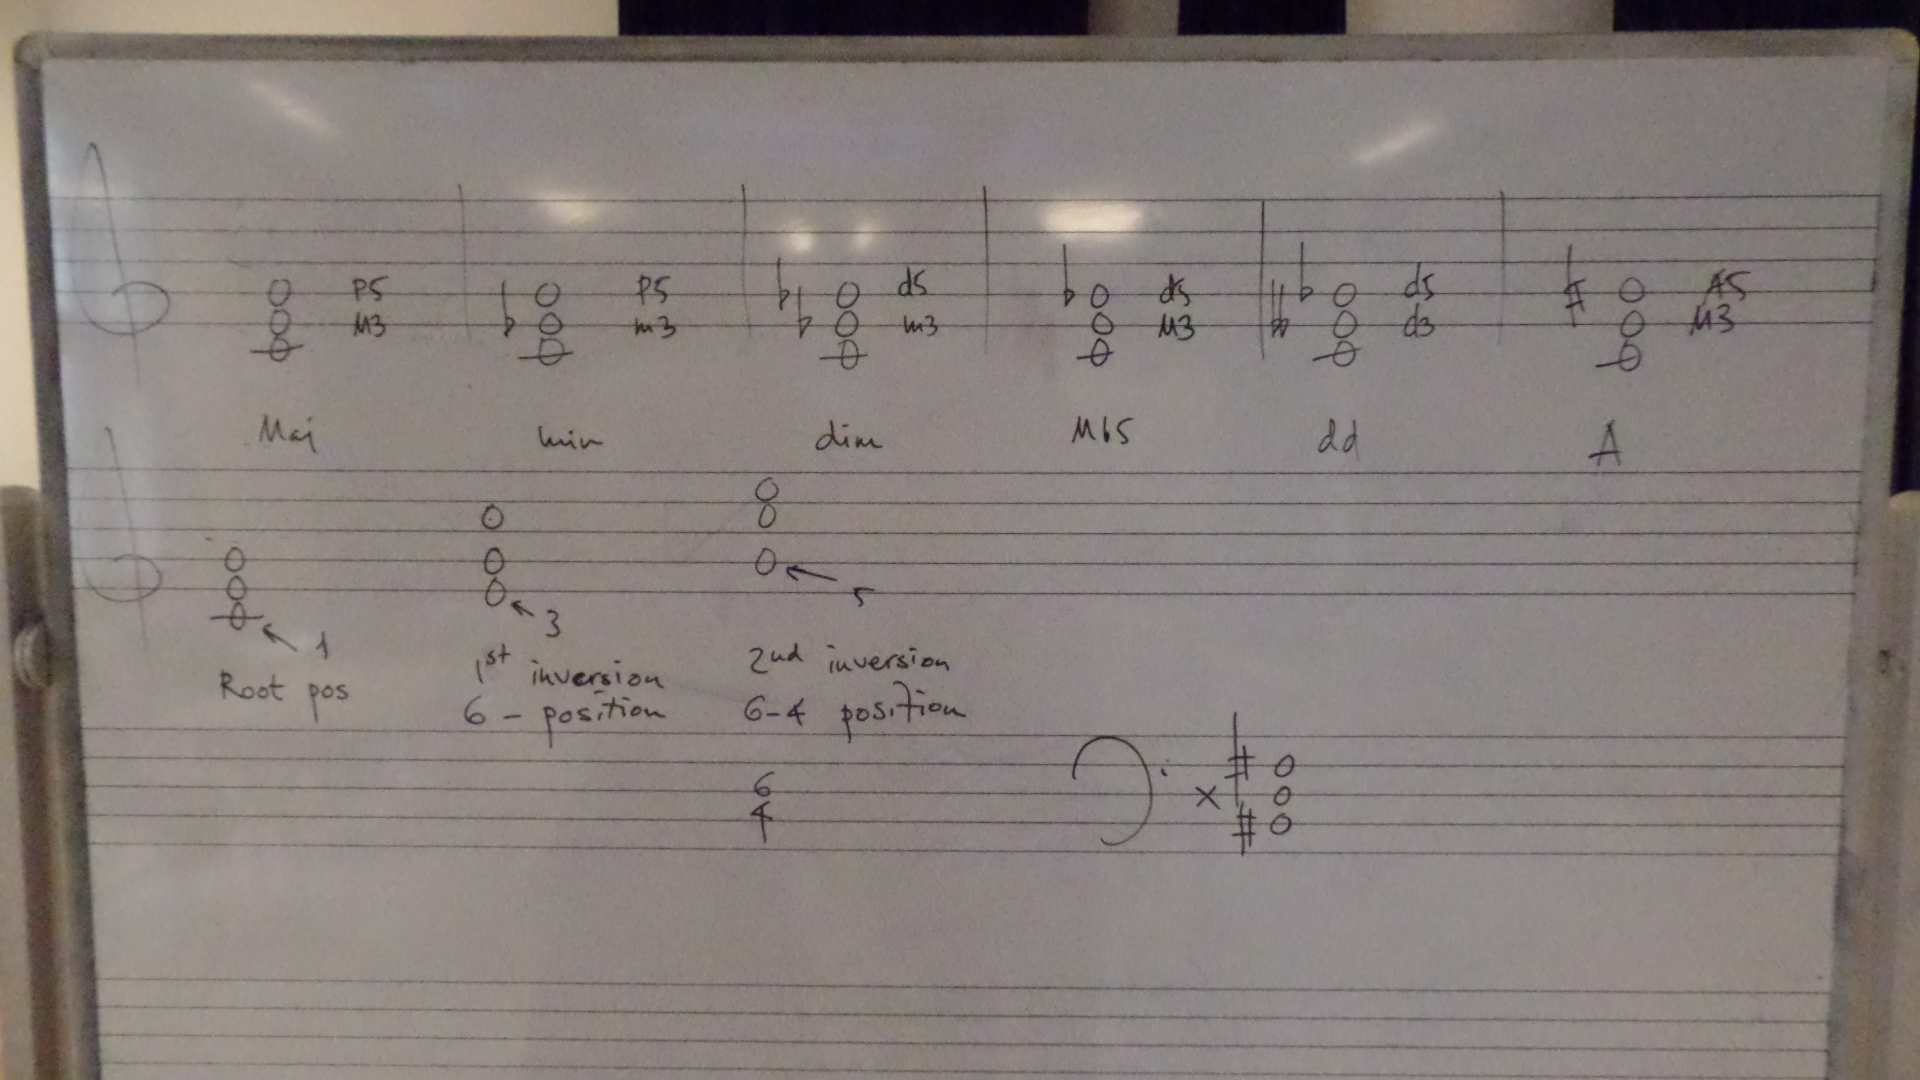 P5 P5 d5 d5 d5 A5
M3 m3 m3 M3 d3 M3
Maj min dim Mb5 dd A
1 3 5
Root pos 1st inversion 2nd inversion
6 - position 6-4 position
6
4